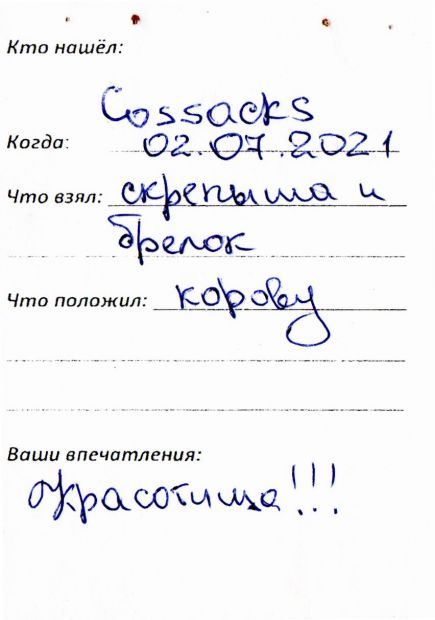 Кто нашёл:
Cossacks
Когда: 02.07.2021
Что взял: скрепыша и
брелок
Что положил: корову
Ваши впечатления:
Красотища!!!